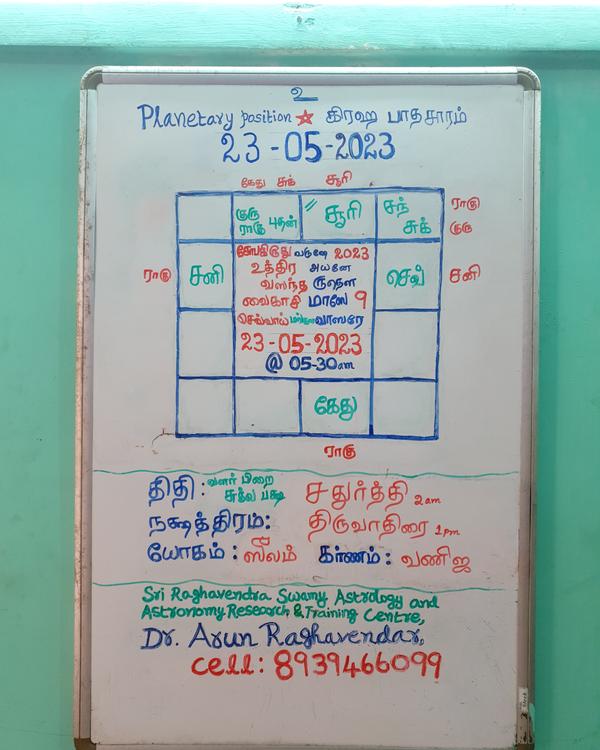 உ
Planetary position ☆ கிரஹ பாதசாரம்
23-05-2023
கேது சுக் சூரி
குரு ராகு புதன்
சூரி
சந் சுக்
ராகு
குரு
ராகு
சனி
செவ்
சனி
சோபகிருது வருஷே 2023
உத்திர அயனே
வஸந்த ருதௌ
வைகாசி மாஸே 9
செவ்வாய் வாஸரே
23-05-2023
@ 05-30am
கேது
ராகு
திதி : வளர் பிறை சுக்ல பக்ஷ சதுர்த்தி 2am
நக்ஷத்திரம்: திருவாதிரை 1pm
யோகம் : ஸூலம் கர்ணம் : வணிஜ
Sri Raghavendra Swamy Astrology and
Astronomy Research & Training Centre,
Dr. Arun Raghavendar,
cell: 8939466099